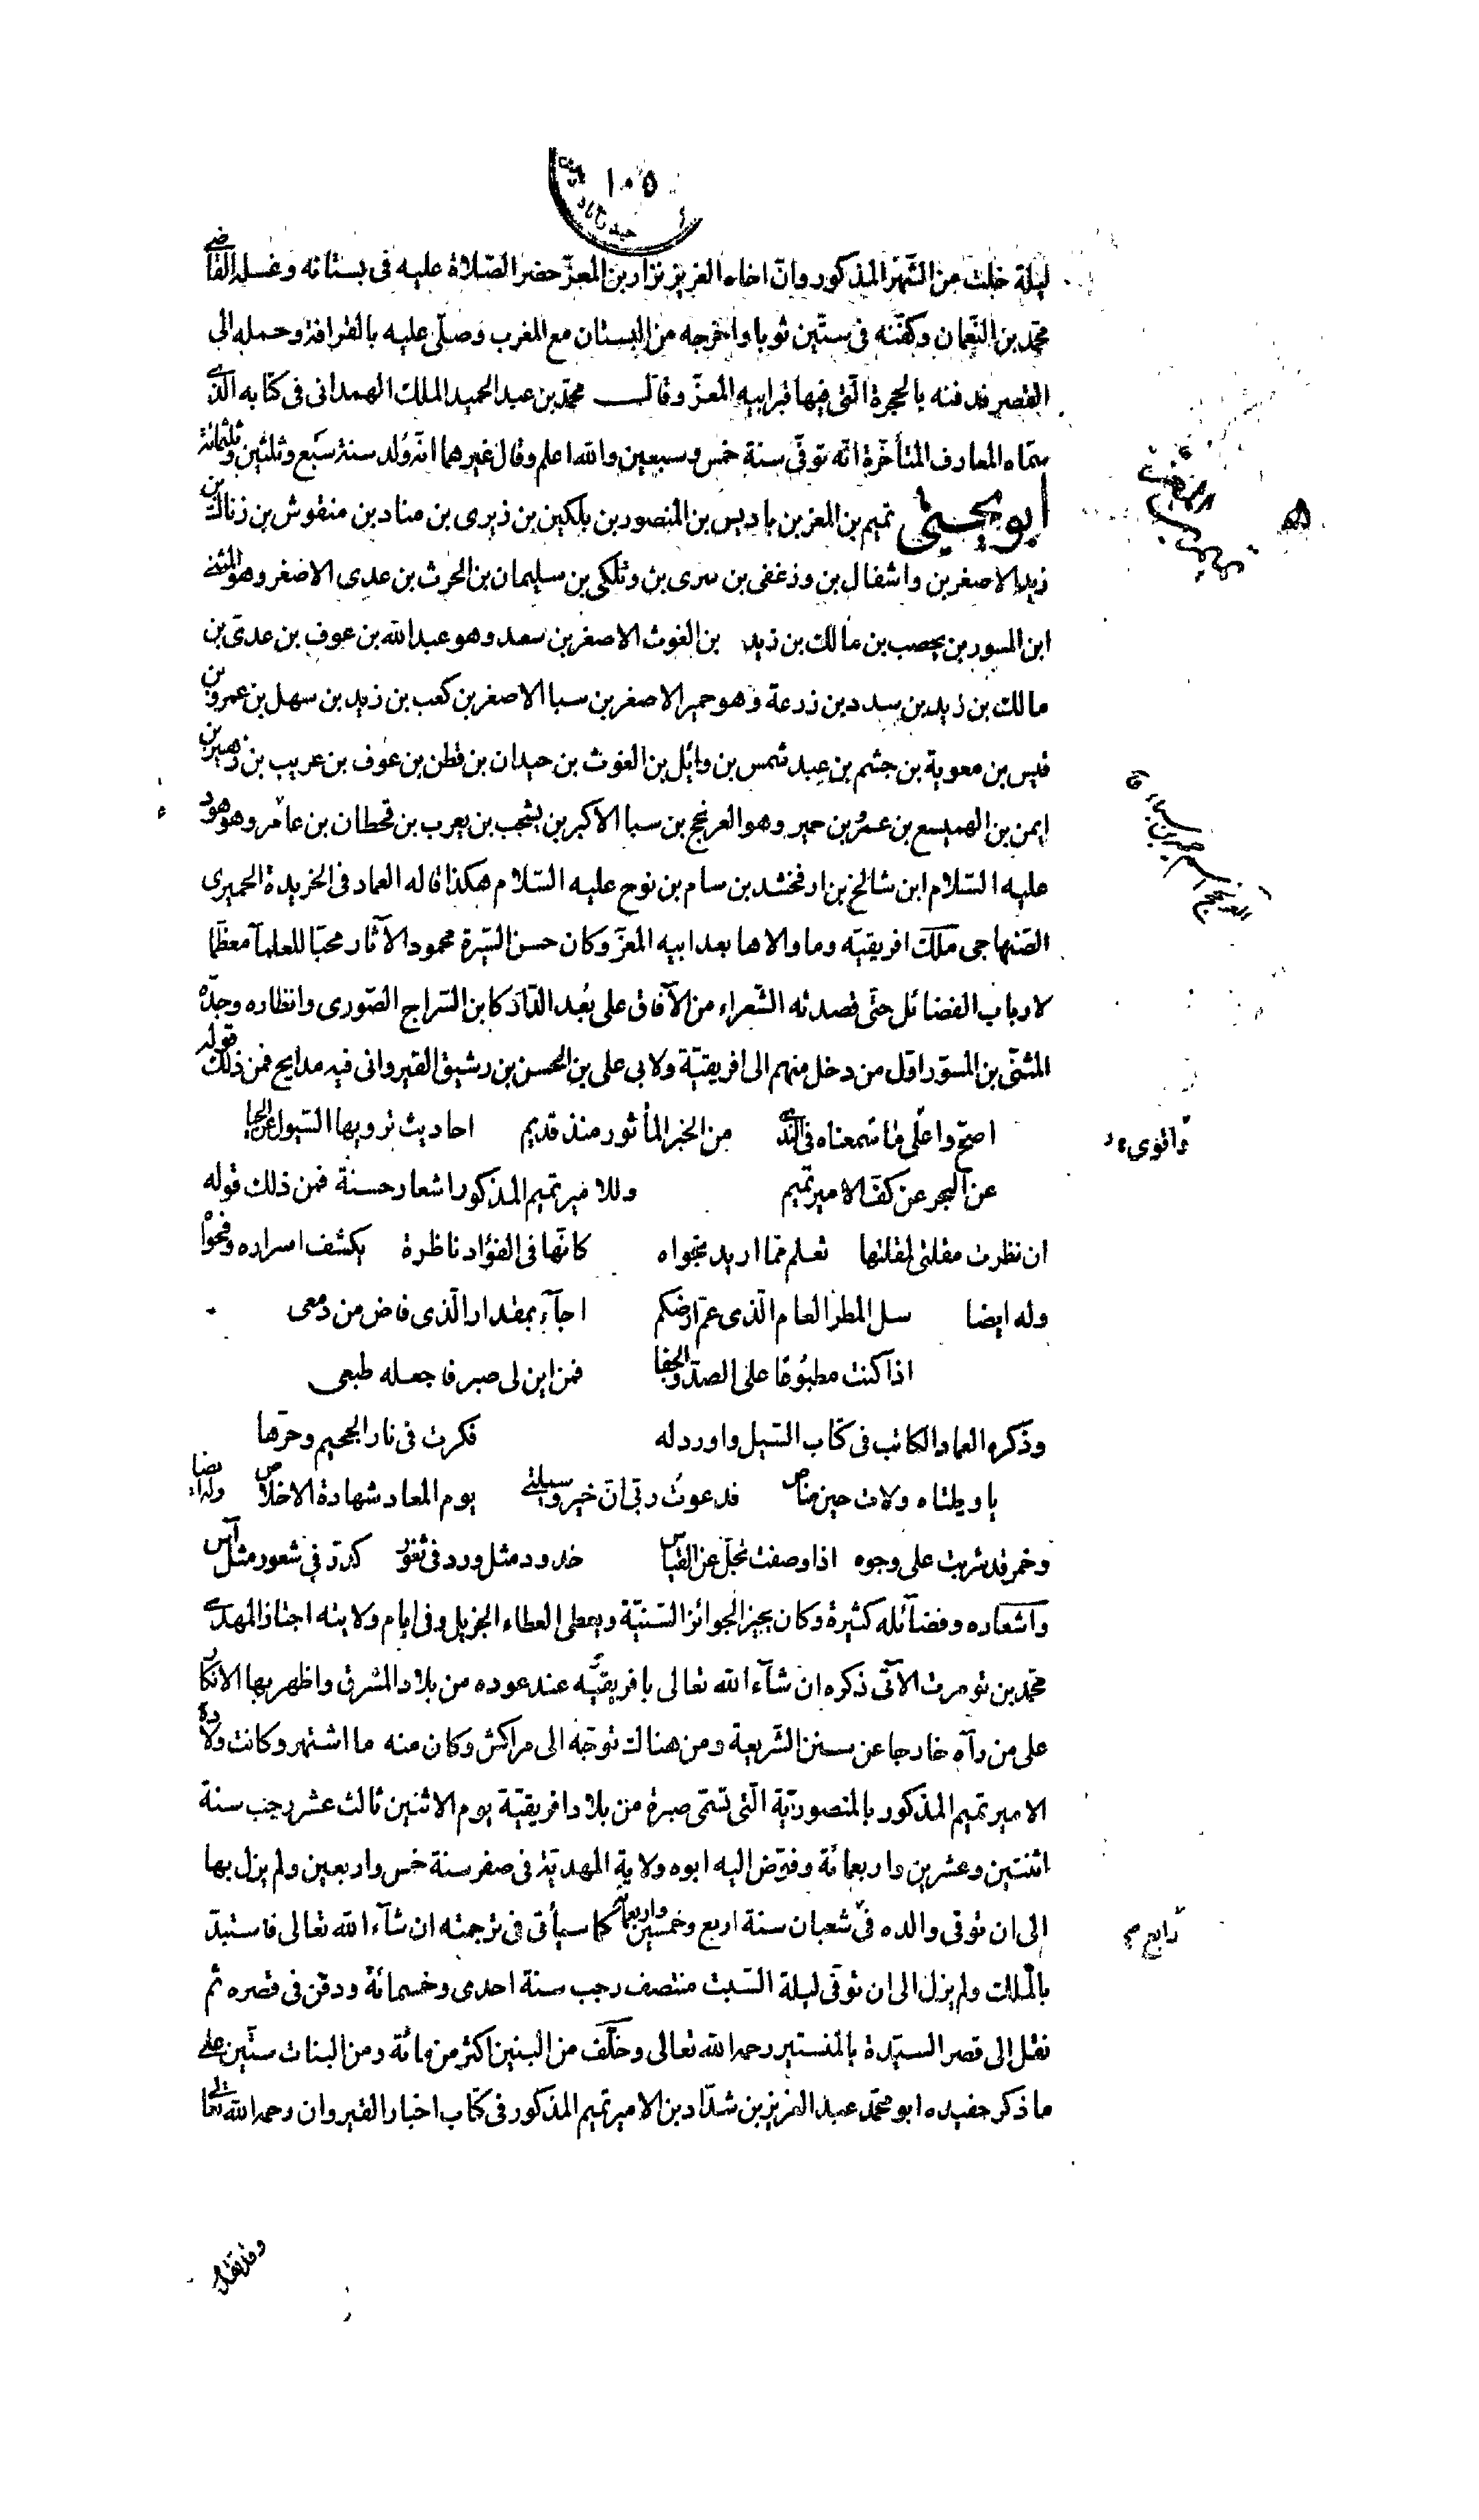 ١٠٥
ليلة خلت من الشّهر المذكور وانّ اخاه العزيز نزار بن المعزّ حضر الصّلاة عليه فى بستانه وغسله القاضى
محمّد بن النّعمان وكفّنه فى ستّين ثوبا واخرجه من البستان مع المغرب وصلّى عليه بالقرافة وحمله الى
القصر فدفنه بالحجرة الّتى فيها قبر ابيه المعزّ وقال محمّد بن عبد الحميد الملك الهمدانى فى كتابه الّذى
سمّاه المعارف المتأخّرة انّه توفّى سنة خمس وسبعين والله اعلم وقال غيرهما انّه وُلد سنة سَبع وثلثين وثلثمائة
أبو يحيى تميم بن المعز بن باديس بن المنصور بن بلكين بن زيرى بن مناد بن منقوش بن زناك بن
زيد الاصغر بن واشفال بن وزغفى بن سرى بن وتلكى بن سليمان بن الحرث بن عدى الاصغر وهو المثنى
ابن المسور بن يحصب بن مالك بن زيد بن الغوث الاصغر بن سعد وهو عبد الله بن عوف بن عدىّ بن
مالك بن زيد بن سدد بن زرعة وهو حمير الاصغر بن سبا الاصغر بن كعب بن زيد بن سهل بن عمرو بن
قيس بن معوية بن جشم بن عبد شمس بن وائل بن الغوث بن حيدان بن قطن بن عوف بن عريب بن زهير بن
ايمن بن الهميسع بن عمرو بن حمير وهو العرنجج بن سبا الاكبر بن يشجب بن يعرب بن قحطان بن عامر وهو هود
عليه السّلام ابن شالخ بن ارفخشد بن سام بن نوح عليه السّلام هكذا قاله العماد فى الخريدة الحميرى
الصّنهاجى ملك افريقيّه وما والاها بعد ابيه المعزّ وكان حسن السّيرة محمود الآثار محبّا للعلمآ معظّما
لارباب الفضائل حتّى قصدته الشّعراء من الآفاق على بُعد الدّار كابن السّراج الصّورى وانظاره وجدّه
المثنّى بن المسوّر اوّل من دخل منهم الى افريقيّة ولابى على بن الحسن بن رشيق القيروانى فيه مدايح فمن ذلك قوله
اصحّ واعلى ما سَمعناه فى النّدى من الخبر المأثور منذ قديم احاديث ترويها السّيول عن الحيا
واقوى
عن البحر عن كفّ الامير تميم وللامير تميم المذكور اشعار حسنة فمن ذلك قوله
ان نظرت مقلتى لمقلتها تعلم ممّا اريد نجواه كانّها فى الفؤاد ناظرة يكشف اسراره وفحواه
وله ايضا سل المطر العام الّذى عمّ ارضكم اجآء بمقدار الّذى فاض من دمعى
اذا كنت مطبُوعًا على الصدّ والجفا فمن اين لى صبر فاجعله طبعى
وذكره العماد الكاتب فى كتاب السّيل واورد له فكرت فى نار الجحيم وحرّها
يا ويلتاه ولات حين مناص فدعوتُ ربّى انّ خير وسيلتى يوم المعاد شهادة الاخلاص وله ايضا
وخمر قد شربت على وجوه اذا وصفت تجلّ عن القياس خدود مثل ورد فى ثغور كدرّ فى شعور مثل آس
واشعاره وفضآئله كثيرة وكان يجيز الجوائز السّنيّة ويعطى العطاء الجزيل وفى ايام ولايته اجتاز المهدى
محمّد بن تومرت الآتى ذكره ان شآء الله تعالى بافريقيّه عند عوده من بلاد المشرق واظهر بها الانكار
على من رآه خارجا عن سنن الشّريعة ومن هناك توجّه الى مراكش وكان منه ما اشتهر وكانت ولادة
الامير تميم المذكور بالمنصوريّة الّتى تسمّى صبرة من بلاد افريقيّة يوم الاثنين ثالث عشر رجب سنة
اثنتين وعشرين واربعمائة وفوّض اليه ابوه ولاية المهديّة فى صفر سنة خمس واربعين ولم يزل بها
الى ان توفّى والده فى شعبان سنة اربع وخمسين واربعمائة كما سيأتى فى ترجمته ان شآء الله تعالى فاستبدّ
رابع
بالملك ولم يزل الى ان توفّى ليلة السّبت منتصف رجب سنة احدى وخمسمائة ودفن فى قصره ثم
نقل الى قصر السيّدة بالمنستير رحمه الله تعالى وخلّف من البنين اكثر من مائة ومن البنات ستّين على
ما ذكر حفيده ابو محمّد عبد العزيز بن شدّاد بن الامير تميم المذكور فى كتاب اخبار القيروان رحمه الله تعالى